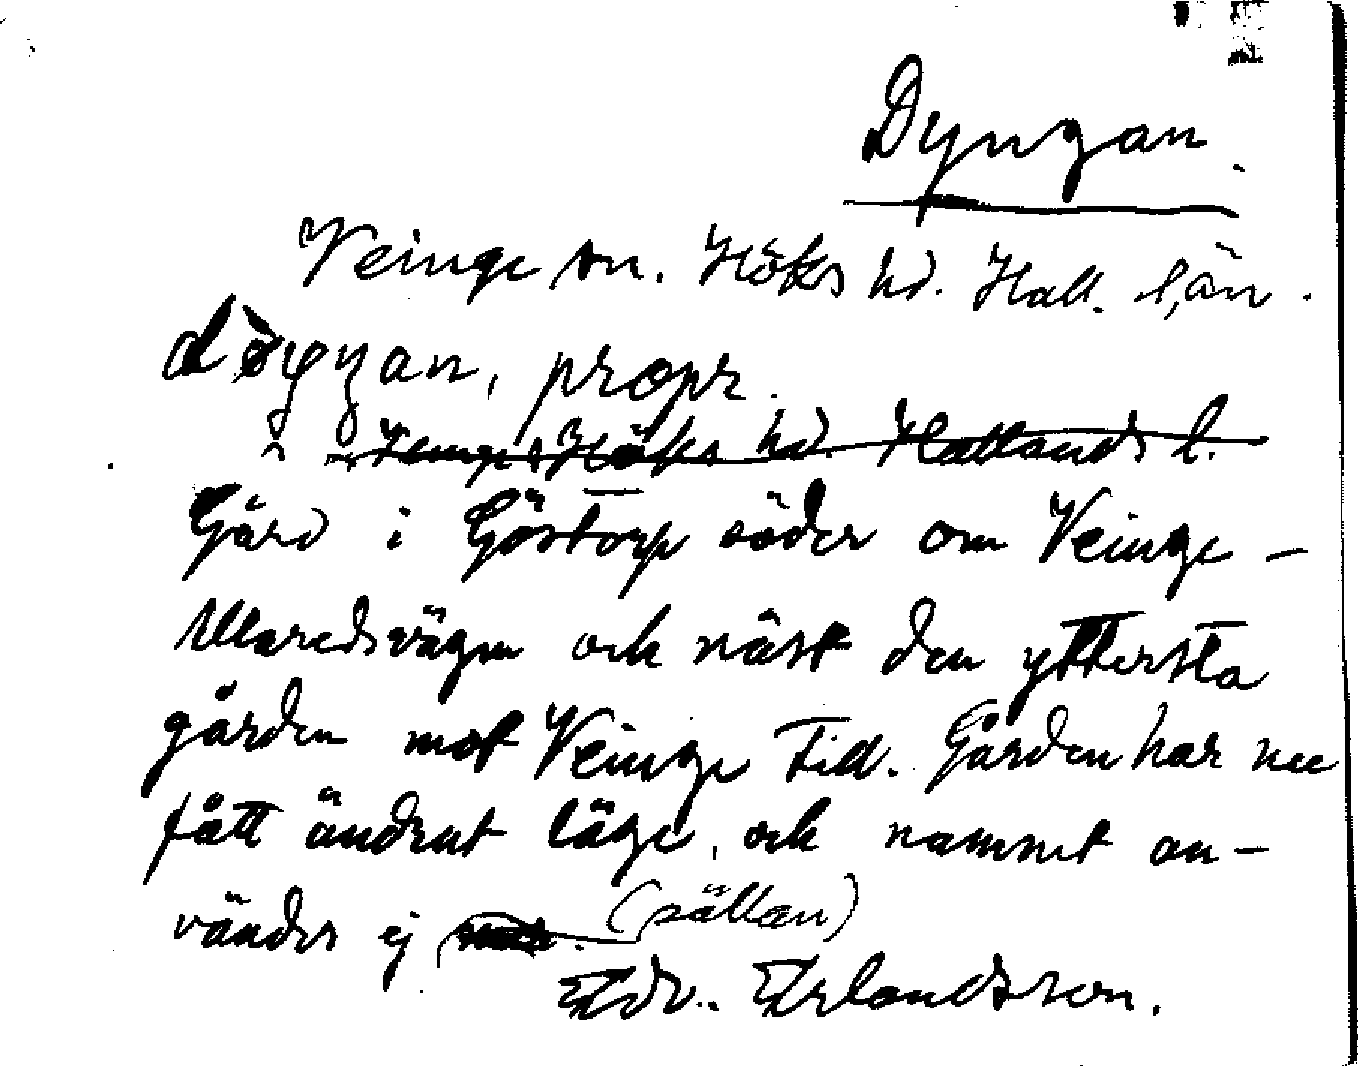 Dyngan.
Veinge sn. Höks hd. Hall. län.
propr.
Höks hd. Hallands l.
Gård i Göstorp söder om Veinge-
Ullaredsvägen och näst den yttersta
gården mot Veinge till. Gården har nu
fått ändrat läge, och namnet an-
vändes ej (sällan)
Edv. Erlandsson.